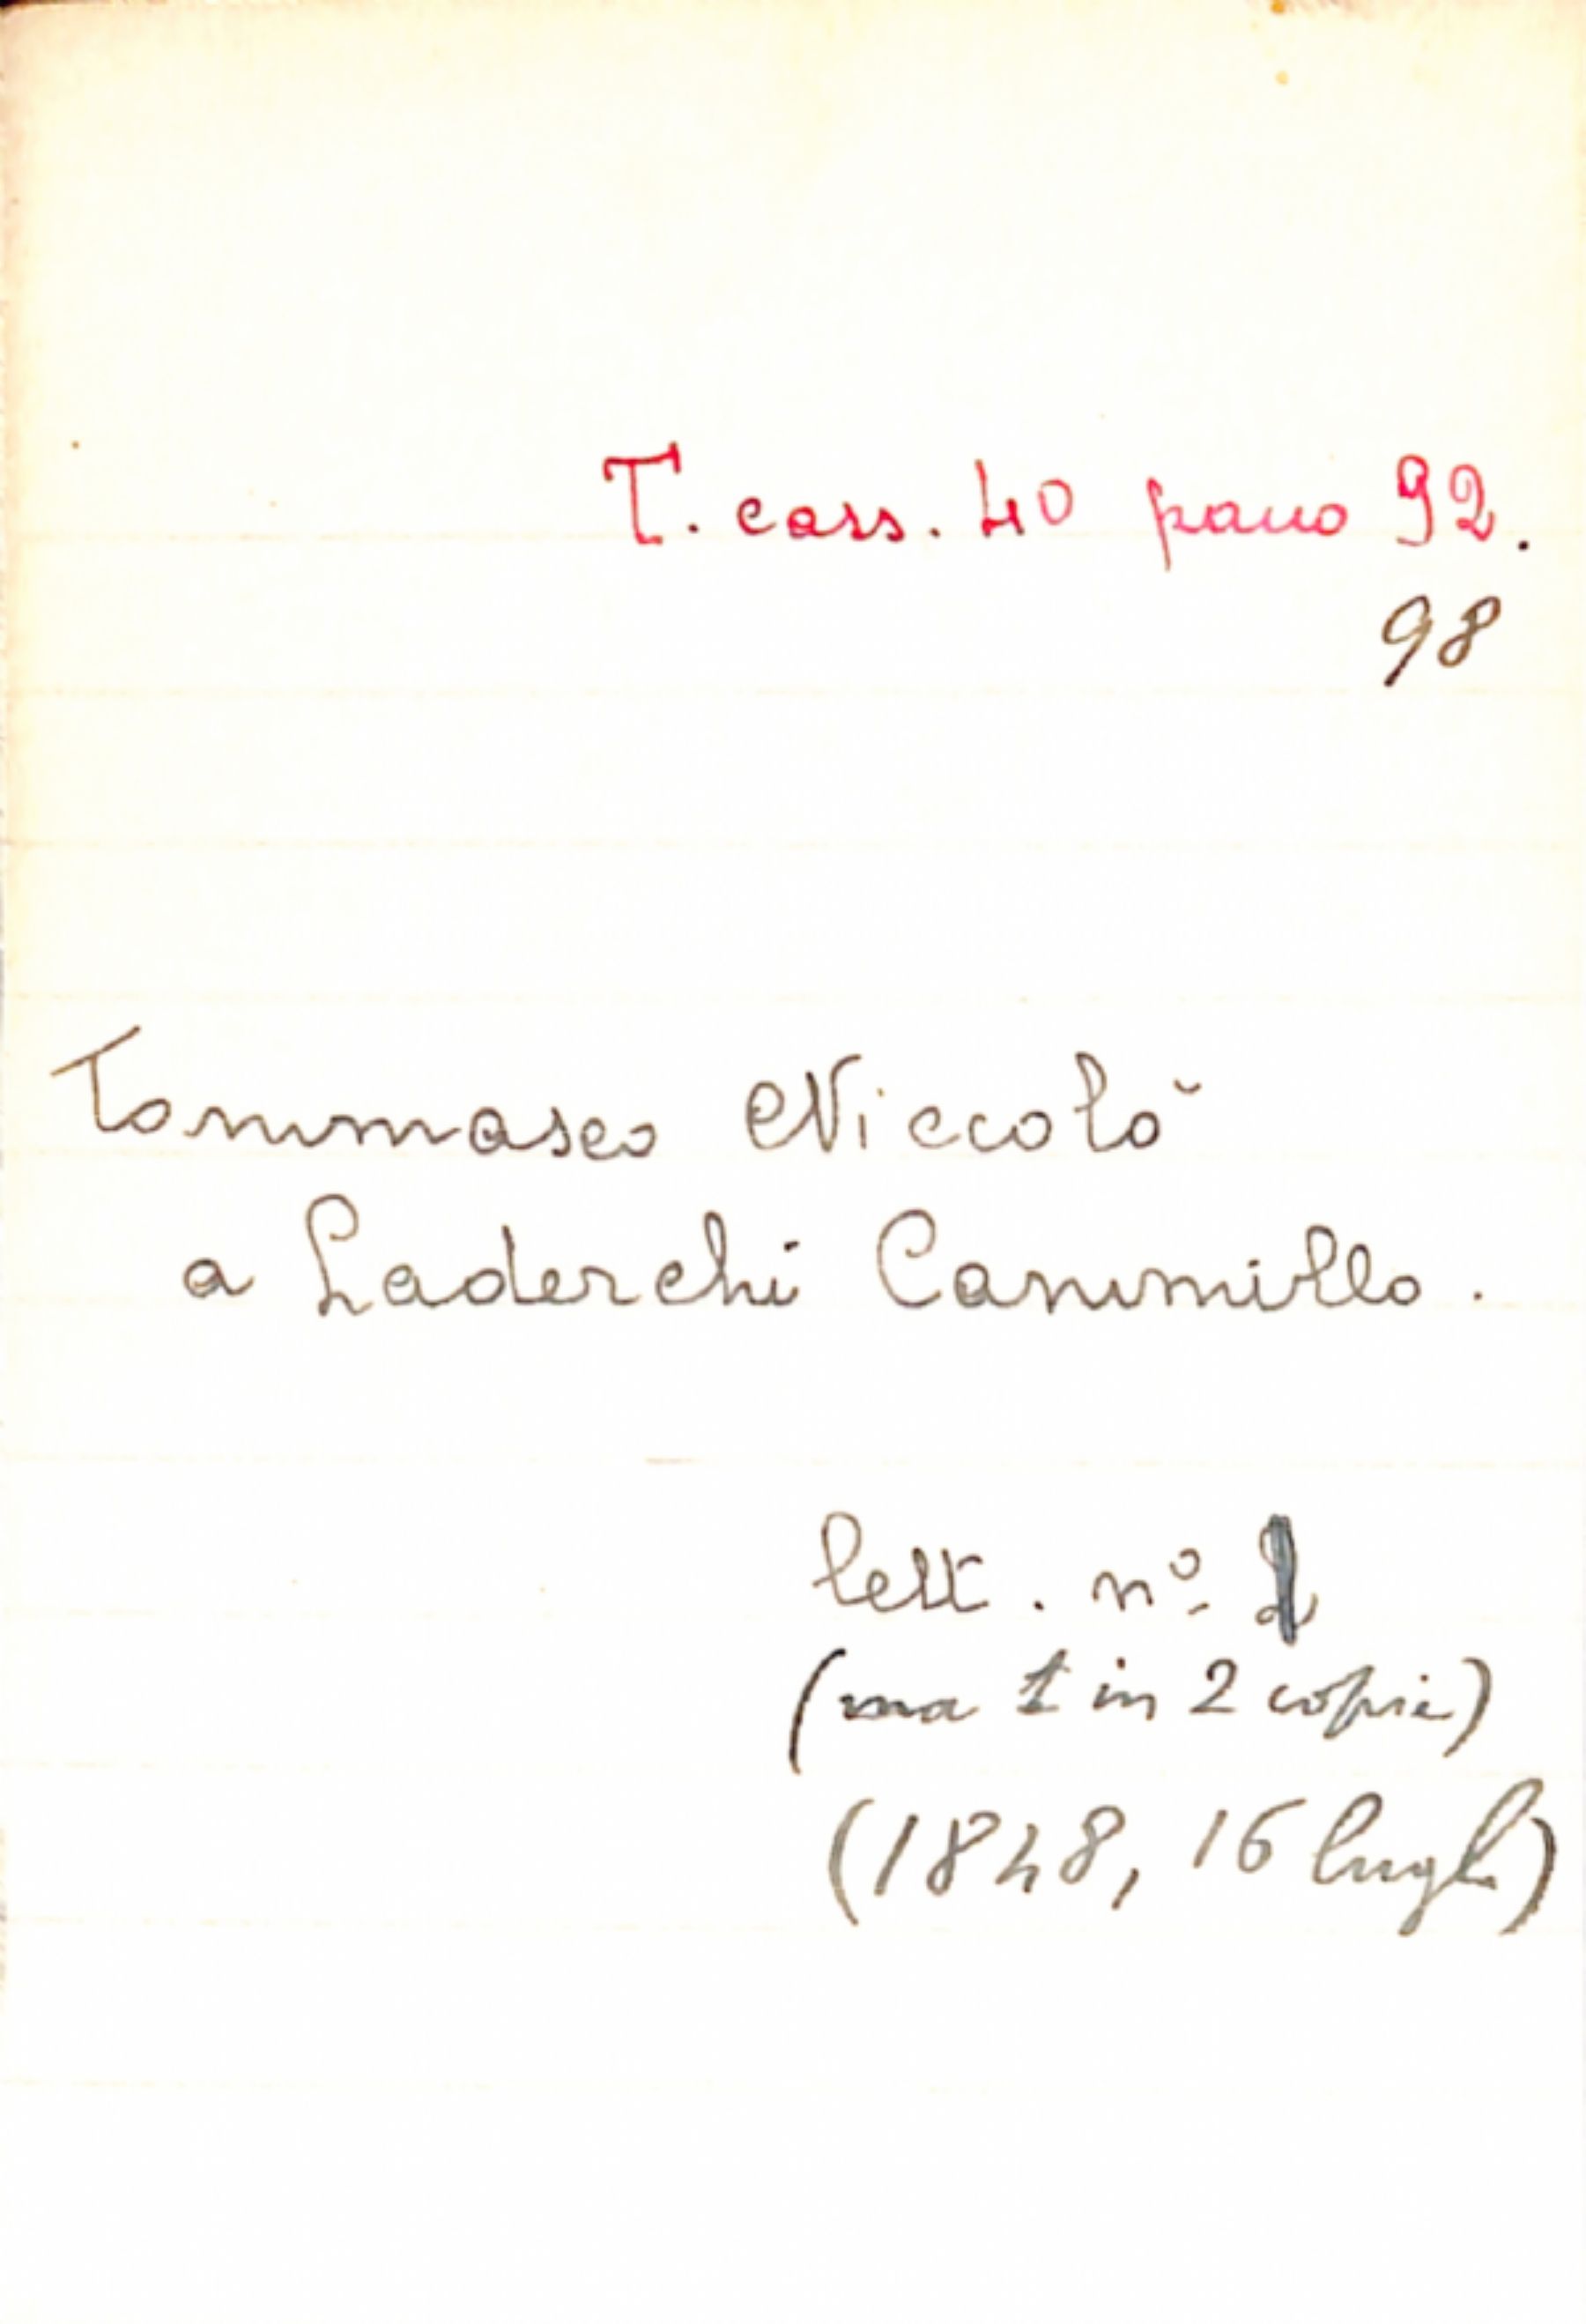 T. cass. 40 pacco 92.
98
Tommaseo Niccolò
a Laderchi Cammillo.
lett. nº. 1
(ma 1 in 2 copie)
(1848, 16 lugl.)